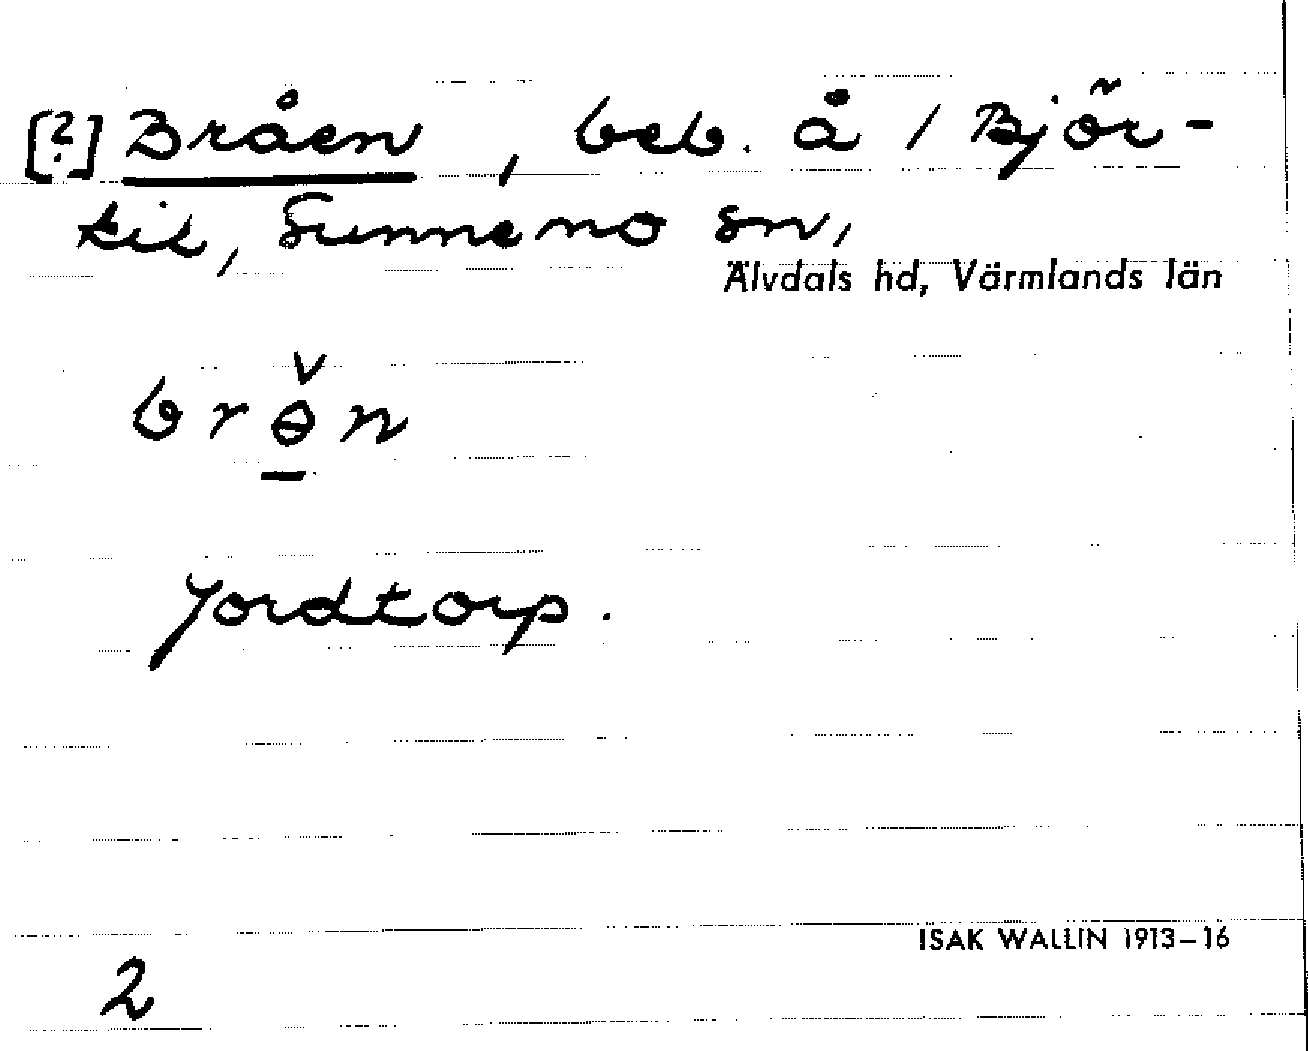 [?] Bråen, beb. å / Björ-
kil, Sunnemo sn,
Älvdals hd, Värmlands län
brɵ̌n
Jordtorp.
ISAK WALLIN 1913-16
2